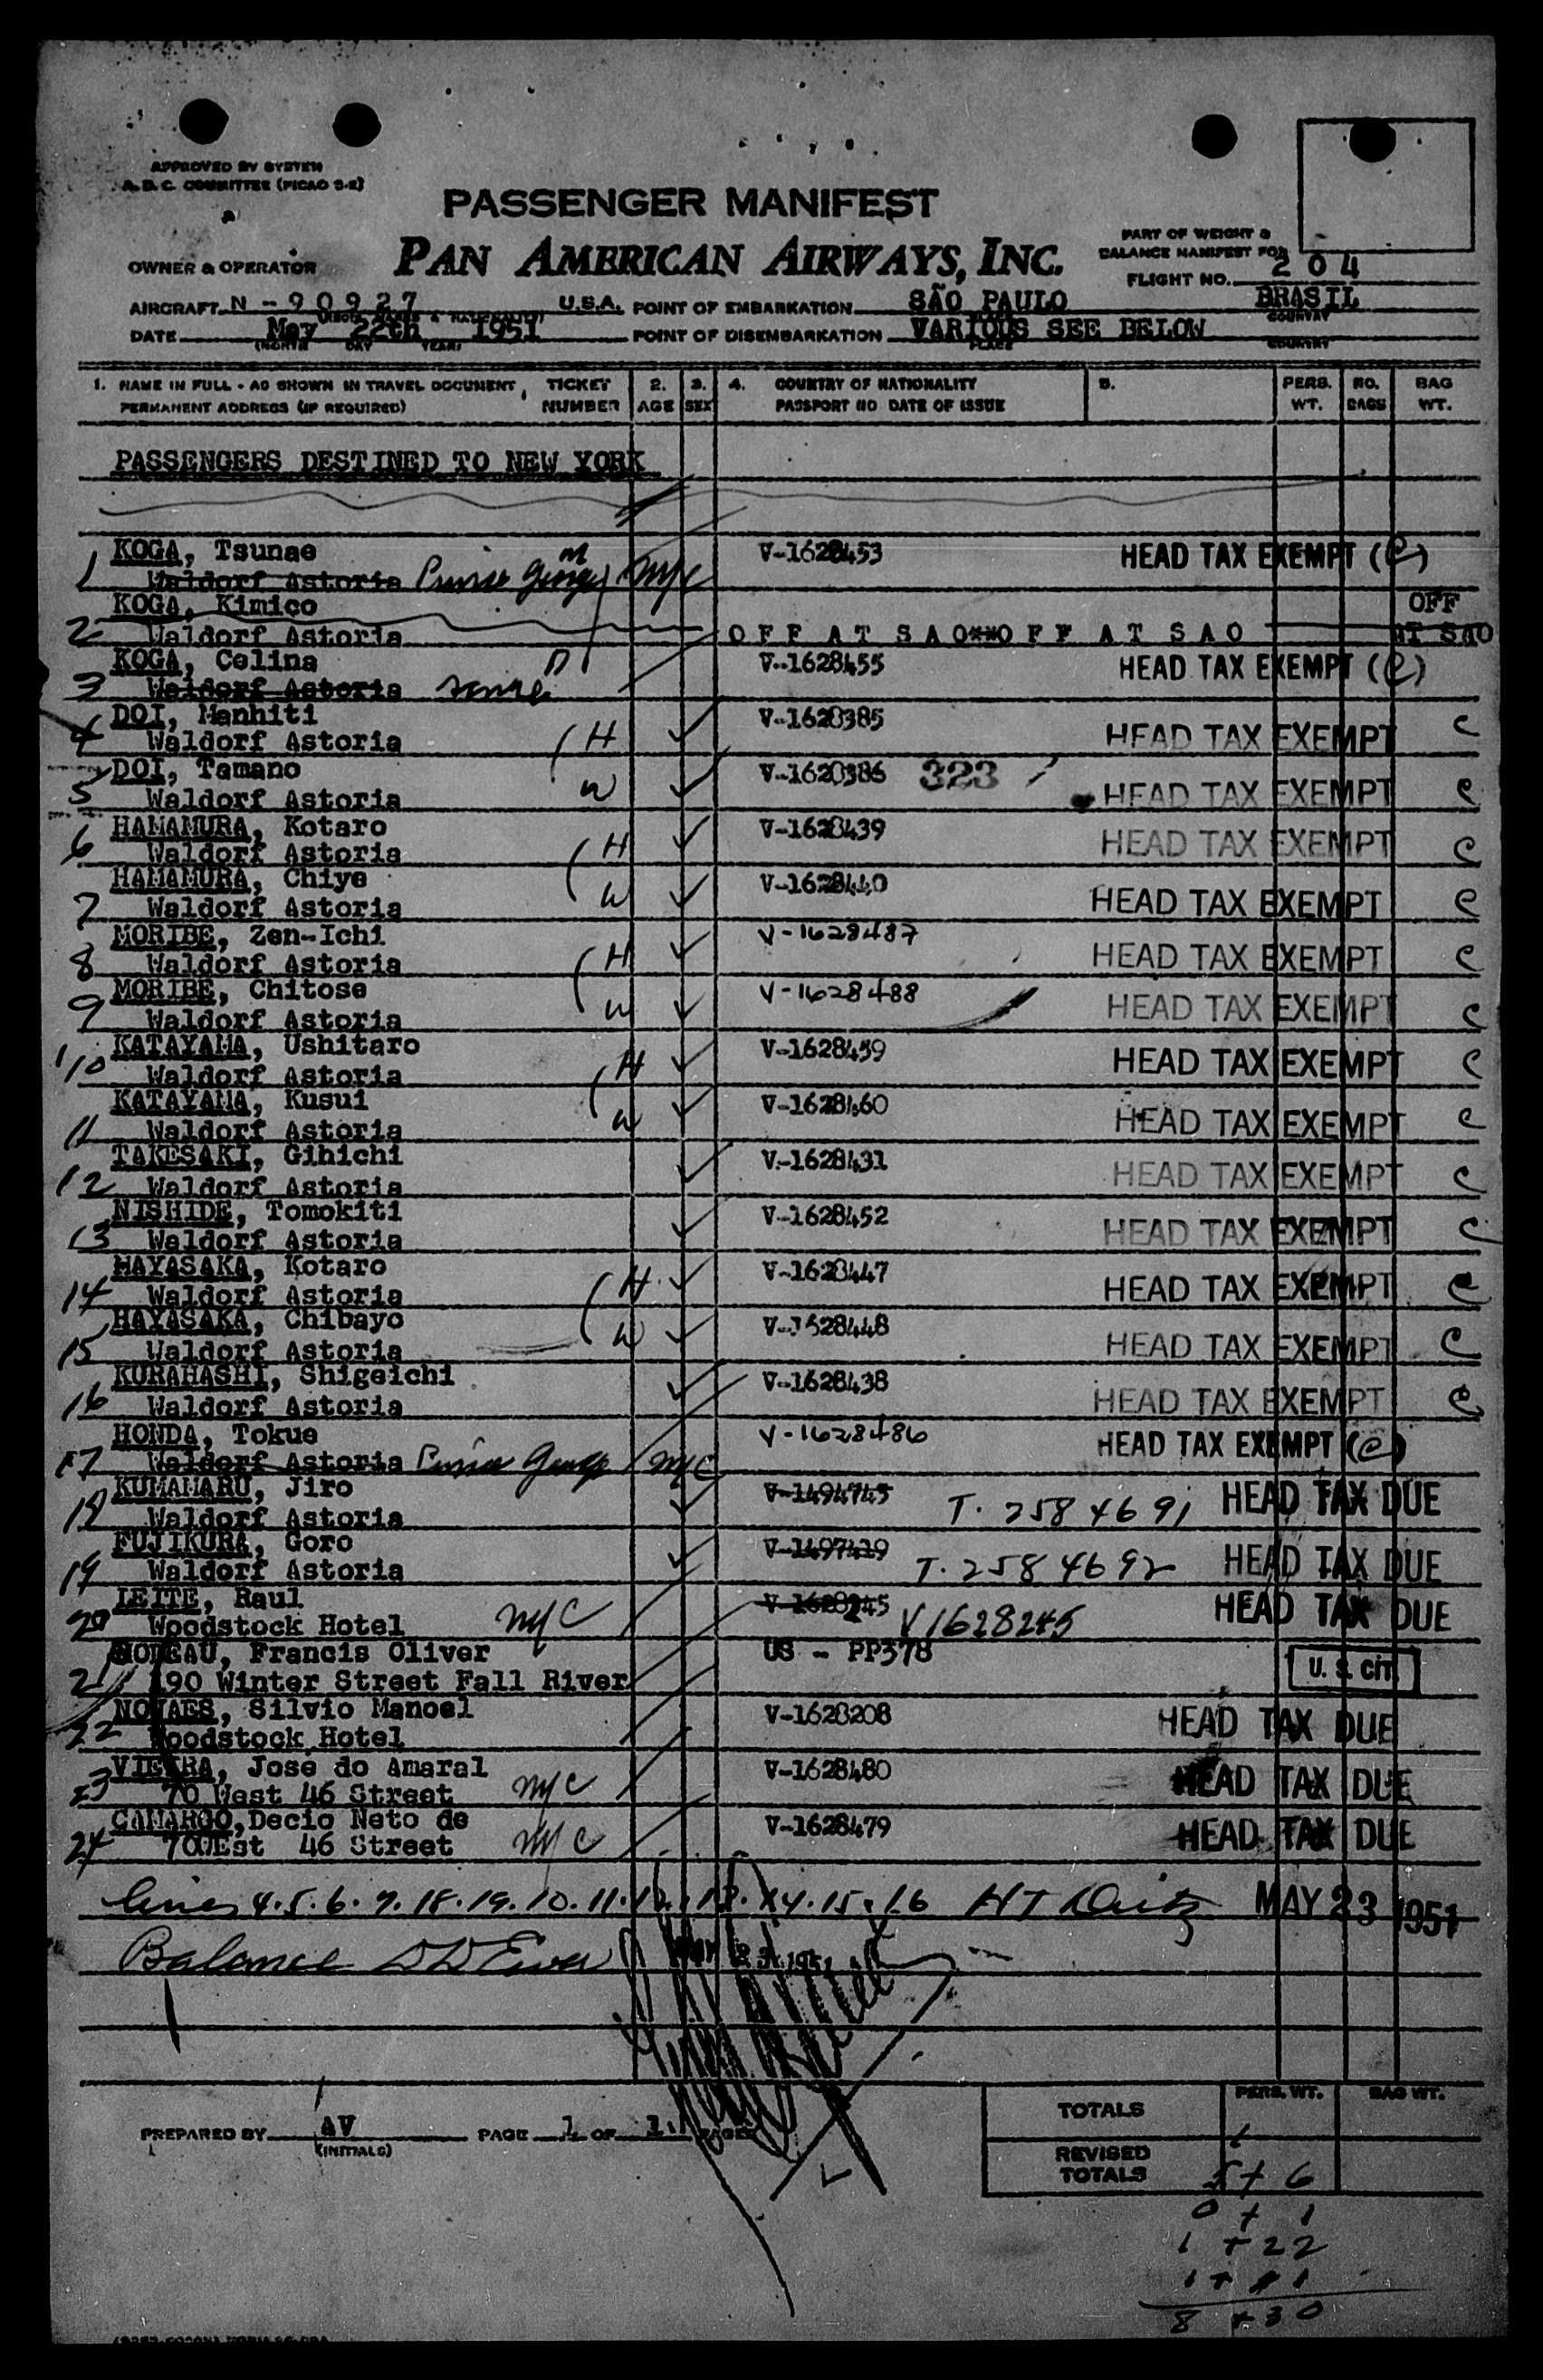 APPROVED BY SYSTEM
A. D. C. COMMITTEE (PICAO S-E)
PASSENGER MANIFEST
PAN AMERICAN AIRWAYS, INC.
PART OF WEIGHT &
BALANCE MANIFEST FOR
OWNER & OPERATOR
FLIGHT NO. 204
AIRCRAFT N - 90927 U.S.A. POINT OF EMBARKATION SÃO PAULO BRASIL
DATE May 22th 1951 POINT OF DISEMBARKATION VARIOUS SEE BELOW
(MONTH DAY YEAR) PLACE COUNTRY
1. NAME IN FULL - AS SHOWN IN TRAVEL DOCUMENT, TICKET 2. 3. 4. COUNTRY OF NATIONALITY 5. PERS. NO. BAG
PERMANENT ADDRESS (IF REQUIRED) NUMBER AGE SEX PASSPORT NO DATE OF ISSUE WT. BAGS WT.
PASSENGERS DESTINED TO NEW YORK
KOGA, Tsunae M V-1628453 HEAD TAX EXEMPT (C)
1 Waldorf Astoria Prince George NYC
KOGA, Kimico OFF
2 Waldorf Astoria OFF AT SAO**OFF AT SAO AT SAO
KOGA, Celina V-1628455 HEAD TAX EXEMPT (C)
3 Waldorf Astoria
DOI, Manhiti V-1628385
4 Waldorf Astoria H HEAD TAX EXEMPT C
DOI, Tamano V-1628386 323
5 Waldorf Astoria W HEAD TAX EXEMPT C
HAMAMURA, Kotaro V-1628439
6 Waldorf Astoria H HEAD TAX EXEMPT C
HAMAMURA, Chiye V-1628440
7 Waldorf Astoria W HEAD TAX EXEMPT C
MORIBE, Zen-Ichi V-1628487
8 Waldorf Astoria H HEAD TAX EXEMPT C
MORIBE, Chitose V-1628488
9 Waldorf Astoria W HEAD TAX EXEMPT C
KATAYAMA, Ushitaro V-1628459
10 Waldorf Astoria H HEAD TAX EXEMPT C
KATAYAMA, Kusui V-1628460
11 Waldorf Astoria W HEAD TAX EXEMPT C
TAKESAKI, Gihichi V-1628431
12 Waldorf Astoria HEAD TAX EXEMPT C
NISHIDE, Tomokiti V-1628452
13 Waldorf Astoria HEAD TAX EXEMPT C
HAYASAKA, Kotaro V-1628447
14 Waldorf Astoria H HEAD TAX EXEMPT C
HAYASAKA, Chibayo V-1628448
15 Waldorf Astoria W HEAD TAX EXEMPT C
KURAHASHI, Shigeichi V-1628438
16 Waldorf Astoria HEAD TAX EXEMPT C
HONDA, Tokue V-1628486 HEAD TAX EXEMPT (C)
17 Waldorf Astoria Prince George NYC
KUMAMARU, Jiro V-1494745 T. 2584691 HEAD TAX DUE
18 Waldorf Astoria
FUJIKURA, Goro V-1497419 T. 2584692 HEAD TAX DUE
19 Waldorf Astoria
LEITE, Raul V-1628245 V1628245 HEAD TAX DUE
20 Woodstock Hotel NYC
Francis Oliver US - PP378
21 190 Winter Street Fall River U. S. CIT
NOVAES, Silvio Manoel V-1628208 HEAD TAX DUE
22 Woodstock Hotel
VIEIRA, José do Amaral V-1628480 HEAD TAX DUE
23 70 West 46 Street NYC
CAMARGO, Decio Neto de V-1628479 HEAD TAX DUE
24 70WEst 46 Street NYC
Lines 4.5.6.7.18.19.10.11.12.13.14.15.16 MAY 23 1951
Balance
PREPARED BY AV PAGE 1 OF 1 PAGES
(INITIALS)
PERS. WT. BAG WT.
TOTALS
REVISED
TOTALS
5+ 6
0 + 1
1 + 22
1 + 1
8 + 30